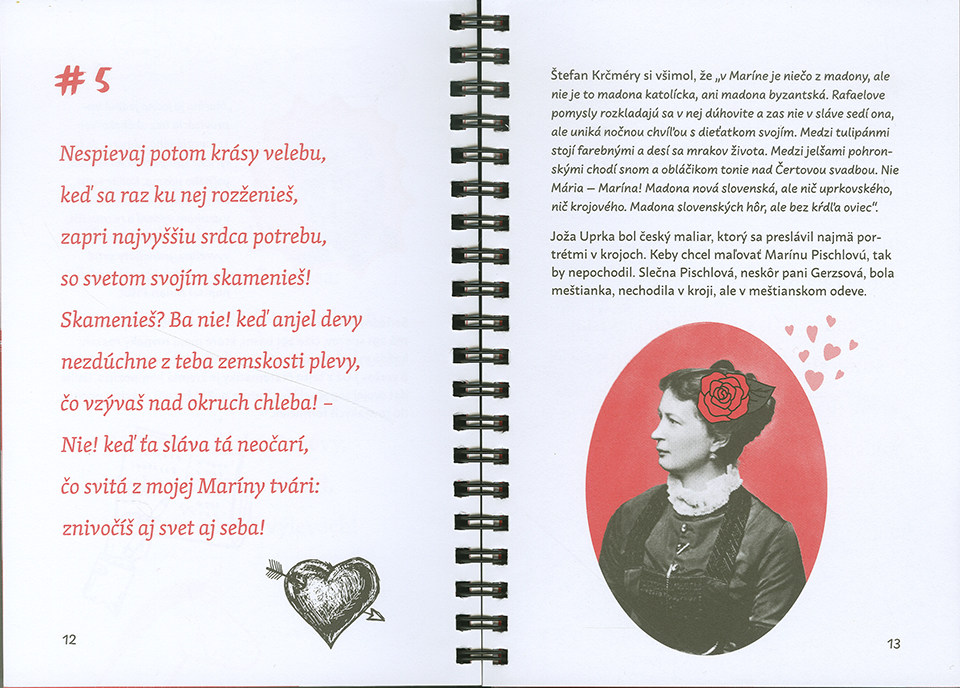 # 5
Nespievaj potom krásy velebu,
keď sa raz ku nej rozženieš,
zapri najvyššiu srdca potrebu,
so svetom svojím skamenieš!
Skamenieš? Ba nie! keď anjel devy
nezdúchne z teba zemskosti plevy,
čo vzývaš nad okruch chleba! –
Nie! keď ťa sláva tá neočarí,
čo svitá z mojej Maríny tvári:
znivočíš aj svet aj seba!
12
Štefan Krčméry si všimol, že „v Maríne je niečo z madony, ale
nie je to madona katolícka, ani madona byzantská. Rafaelove
pomysly rozkladajú sa v nej dúhovite a zas nie v sláve sedí ona,
ale uniká nočnou chvíľou s dieťatkom svojím. Medzi tulipánmi
stojí farebnými a desí sa mrakov života. Medzi jelšami pohron-
skými chodí snom a obláčikom tonie nad Čertovou svadbou. Nie
Mária – Marína! Madona nová slovenská, ale nič uprkovského,
nič krojového. Madona slovenských hôr, ale bez kŕdľa oviec“.
Joža Uprka bol český maliar, ktorý sa preslávil najmä por-
trétmi v krojoch. Keby chcel maľovať Marínu Pischlovú, tak
by nepochodil. Slečna Pischlová, neskôr pani Gerzsová, bola
meštianka, nechodila v kroji, ale v meštianskom odeve.
13